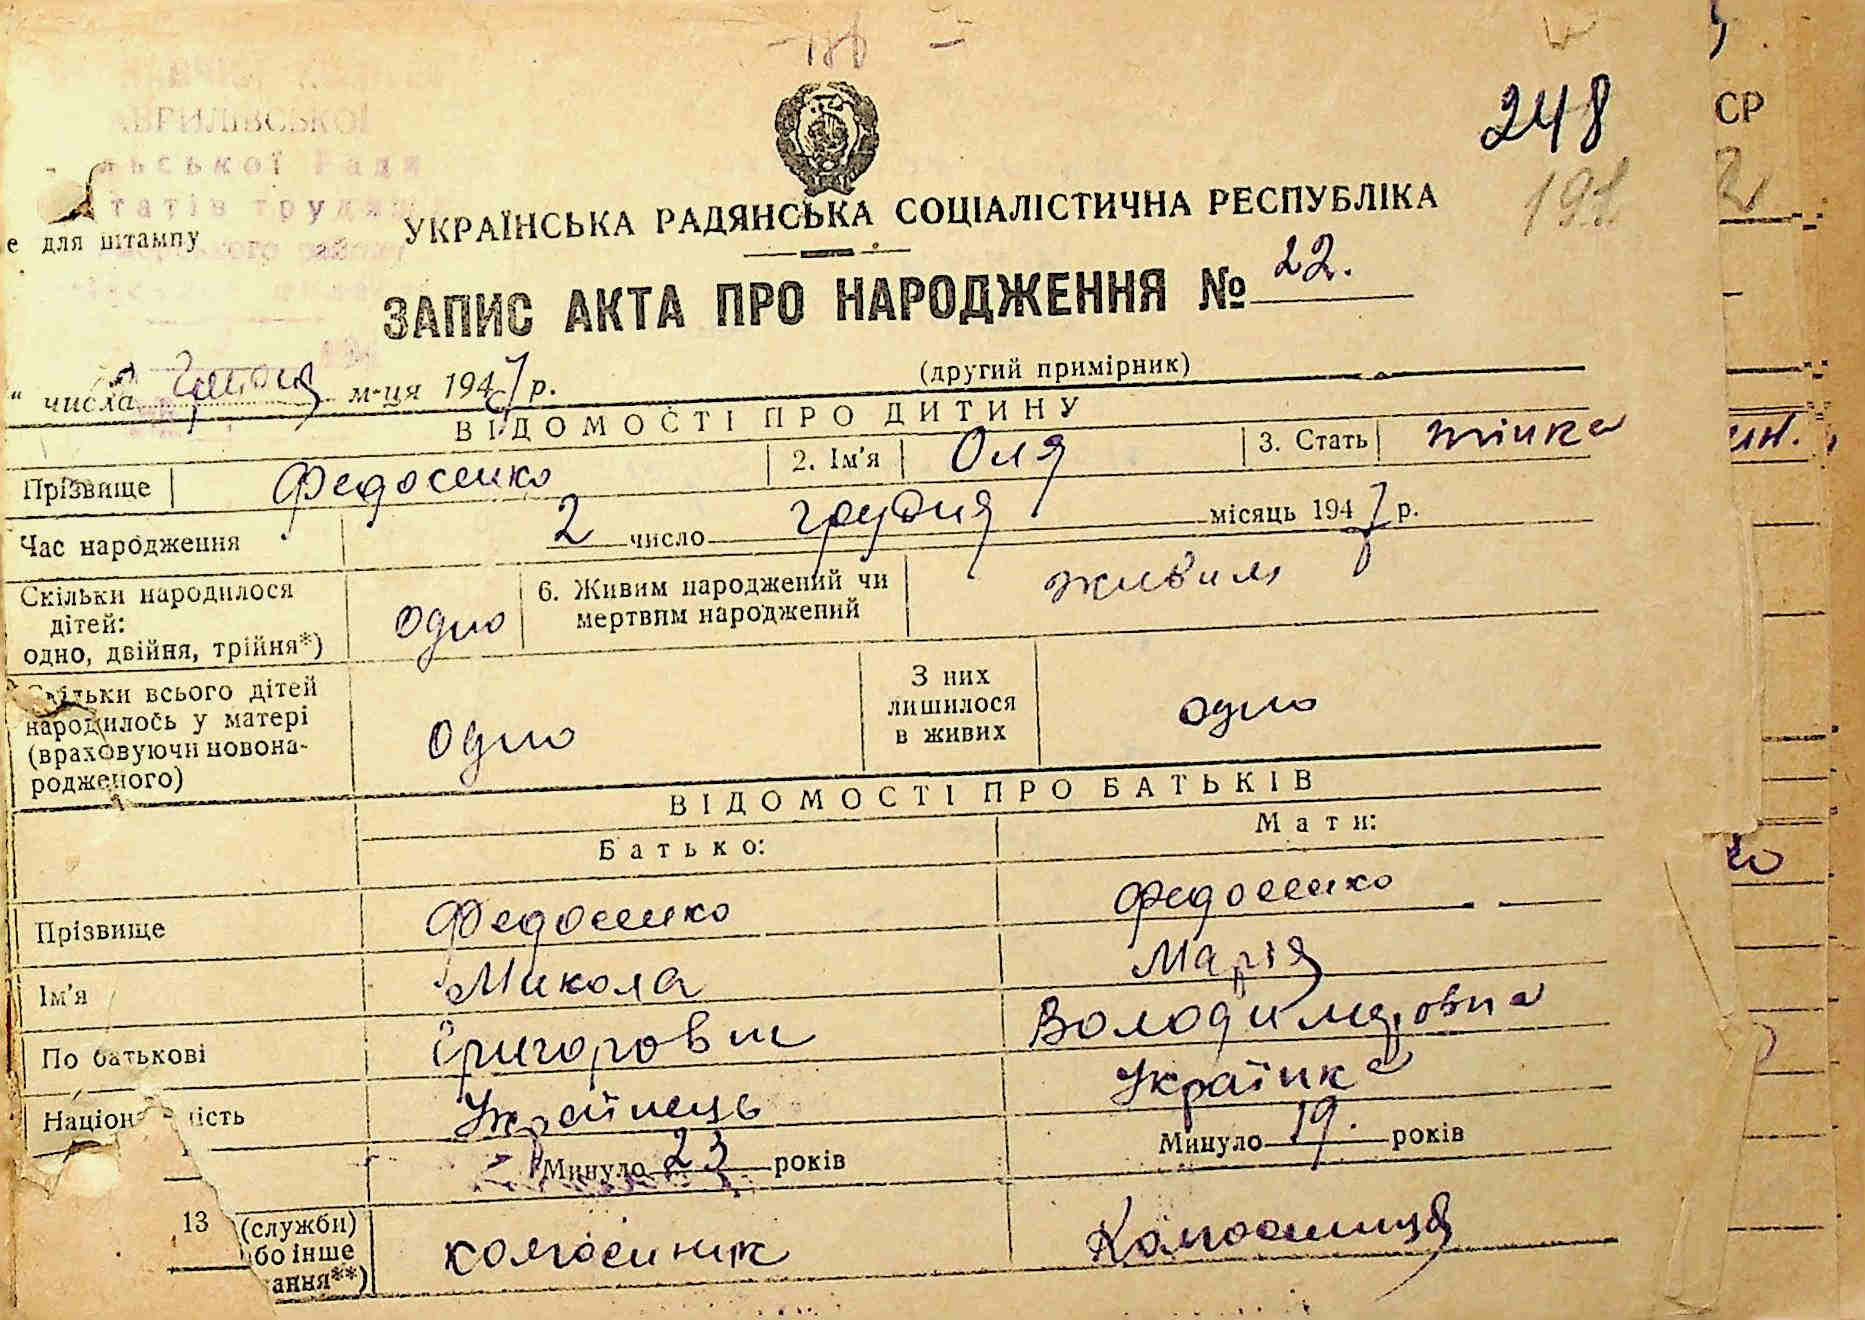 248
АВРИЛІВСЬКОЇ
льської Ради
татів трудящ
е для штампу
УКРАЇНСЬКА РАДЯНСЬКА СОЦІАЛІСТИЧНА РЕСПУБЛІКА
ЗАПИС АКТА ПРО НАРОДЖЕННЯ № 22.
(другий примірник)
" числа грудня м-ця 1947 р.
ВІДОМОСТІ ПРО ДИТИНУ
Прізвище Федосенко 2. Ім'я Оля 3. Стать жінка
Час народження 2 число грудня місяць 1947 р.
Скільки народилося
дітей:
одно, двійня, трійня*) одно 6. Живим народжений чи
мертвим народжений живим
Скільки всього дітей
народилось у матері
(враховуючи новона-
родженого) одно З них
лишилося
в живих одно
ВІДОМОСТІ ПРО БАТЬКІВ
Батько: Мати:
Прізвище Федосенко Федосенко
Ім'я Микола Марія
По батькові Григорович Володимировна
Націон ність Українець Українка
Минуло 23 років Минуло 19. років
13 (служби)
бо інше
ання**) колгоспник Колгоспниця
СР